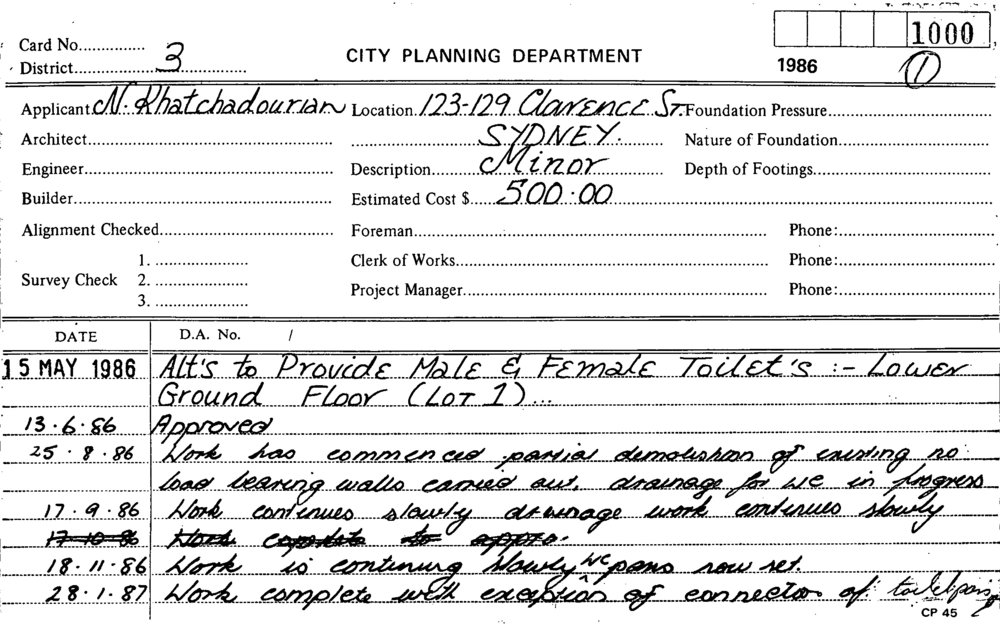 Card No............... 1000
District 3 CITY PLANNING DEPARTMENT 1986 1
Applicant N. Khatchadourian Location 123-129 Clarence St. Foundation Pressure
Architect SYDNEY. Nature of Foundation
Engineer Description Minor Depth of Footings
Builder Estimated Cost $ 500.00
Alignment Checked Foreman Phone:
1. Clerk of Works Phone:
Survey Check 2.
Project Manager Phone:
3.
DATE D.A. No. /
15 MAY 1986 Alt's to Provide Male & Female Toilet's :- Lower
Ground Floor (Lot 1)...
13.6.86 Approved
25.8.86 Work has commenced partial demolishion of existing no
load bearing walls carried out, drainage for WC in progress
17.9.86 Work continues slowly drainage work continues slowly
17.10.86 Work to appro.
18.11.86 Work is continuing slowly WC pans now set.
28.1.87 Work complete with exception of connection of toilet pans
CP 45